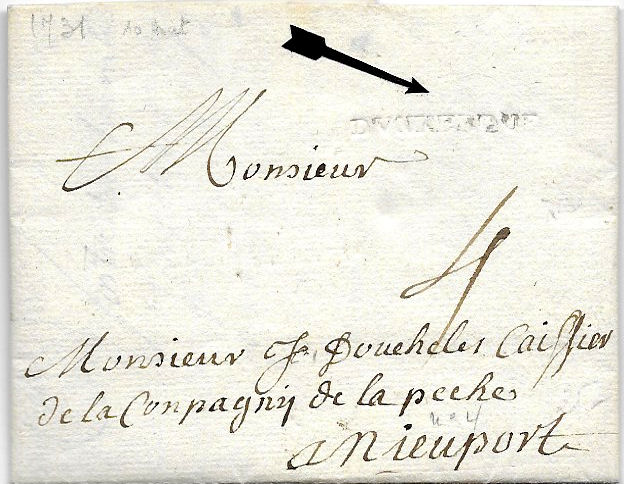 1731 10 aout
DVNKERQUE
Monsieur
4
Monsieur Doucheles Caissier
de la Conpagnij de la peche
n° 4
a Nieuport